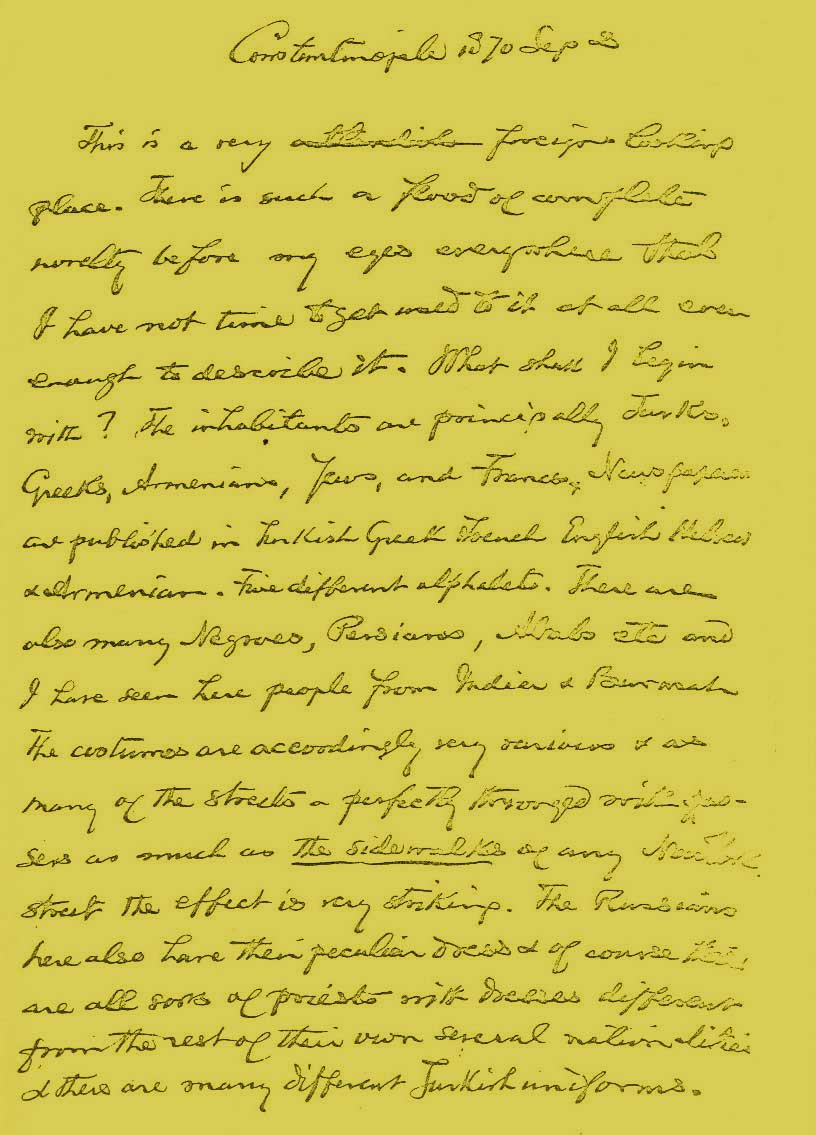 Constantinople 1870 Sep 2
This is a very outlandish foreign looking
place. There is such a flood of complete
novelty before my eyes everywhere that
I have not time to get used to it at all even
enough to describe it. What shall I begin
with? The inhabitants are principally Turks,
Greeks, Armenians, Jews, and Francs. Newspapers
are published in Turkish Greek French English Hebrew
& Armenian. Five different alphabets. There are
also many Negroes, Persians, Arabs etc and
I have seen here people from India & Burmah
The costumes are accordingly very various & as
many of the streets a perfectly thronged with pas-
sers as much as the sidewalks of any New York
street the effect is very striking. The Russians
here also have their peculiar dress & of course there
are all sorts of priests with dresses different
from the rest of their own several nationalities
& there are many different Turkish uniforms.